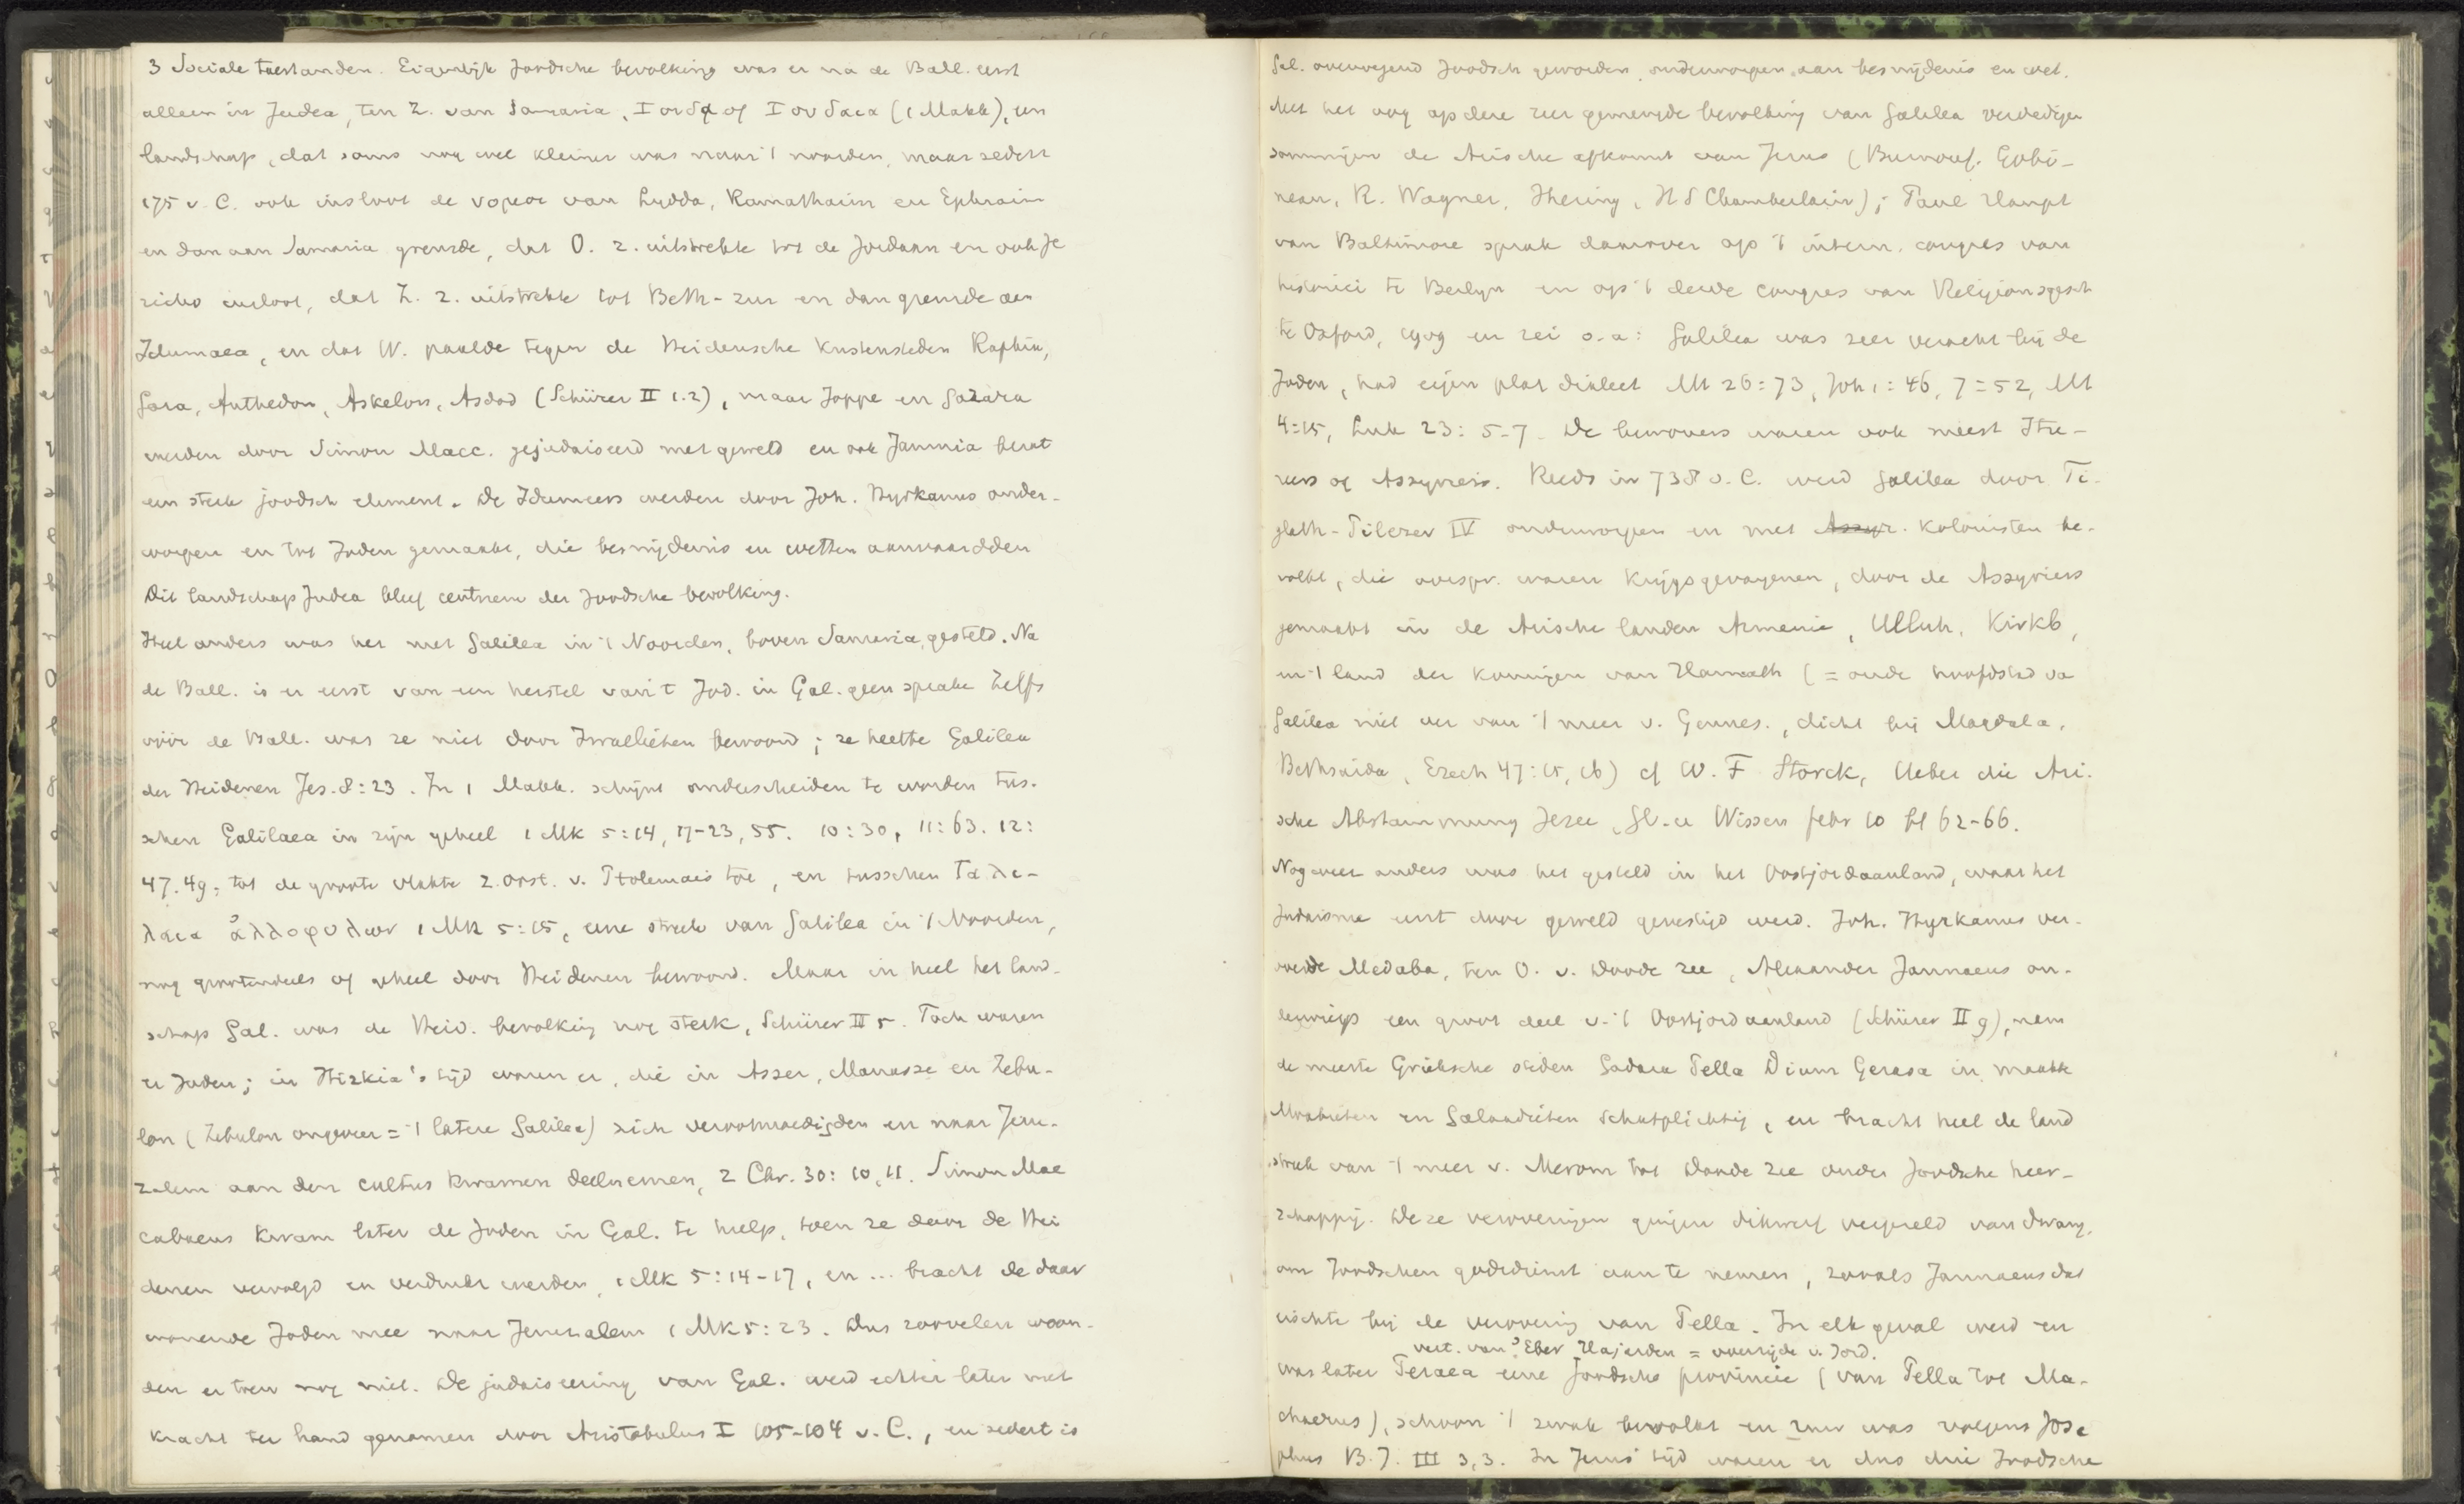 3 Sociale toestanden. Eigenlijk Joodsche bevolking was er na de Ball. eerst
alleen in Judea, ten Z. van Samaria, Ιουδα of Ιουδαια (1 Makk), een
landschap, dat soms nog wel kleiner was naar 't noorden, maar sedert
175 v. C. ook insloot de νομοι van Lydda, Ramathaim en Ephraim
en dan aan Samaria grensde, dat O. z. uitstrekte tot de Jordaan en ook Je
richo insloot, dat Z. z. uitstrekte tot Beth-zur en dan grensde aan
Idumaea, en dat W. paalde tegen de Heidensche kustensteden Raphia,
Gaza, Anthedon, Askelon, Asdod (Schürer II 1.2), maar Joppe en Gazara
werden door Simon Macc. gejudaiseerd met geweld en ook Jamnia bevat
een sterk joodsch element. De Idumeers werden door Joh. Hyrkanus onder-
worpen en tot Joden gemaakt, die besnijdenis en wetten aanvaardden
Dit landschap Judea bleef centrum der Joodsche bevolking.
Heel anders was het met Galilea in 't Noorden, boven Samaria, gesteld. Na
de Ball. is er eerst van een herstel van 't Jod. in Gal. geen sprake Zelfs
vóór de Ball. was ze niet door Israelieten bewoond; ze heette Galilea
der Heidenen Jes. 8:23. In 1 Makk. schijnt onderscheiden te worden tus-
schen Galilaea in zijn geheel 1 Mk 5:14, 17-23, 55. 10:30, 11:63. 12:
47.49, tot de groote vlakte z.oost. v. Ptolemais toe, en tusschen Γαλι-
λαια ἀλλοφυλων 1 Mk 5:15, eene streek van Galilea in 't Noorden,
nog grootendeels of geheel door Heidenen bewoond. Maar in heel het land-
schap Gal. was de Heid. bevolking nog sterk, Schürer II 5. Toch waren
er Joden; in Hizkia's tijd waren er, die in Asser, Manasse en Zebu-
lon (Zebulon ongeveer = 't latere Galilea) zich verootmoedigden en naar Jeru-
zalem aan den cultus kwamen deelnemen, 2 Chr. 30: 10, 11. Simon Mac
cabaeus kwam later de Joden in Gal. te hulp, toen ze door de Hei
denen vervolgd en verdrukt werden, 1 Mk 5:14-17, en ... bracht de daar
wonende Joden mee naar Jeruzalem 1 Mk 5:23. Dus zoovelen woon-
den er toen nog niet. De judaiseering van Gal. werd echter later met
kracht ter hand genomen door Aristobulus I 105-104 v. C., en sedert is
Gal. overwegend Joodsch geworden, onderworpen aan besnijdenis en wet.
Met het oog op deze zeer gemengde bevolking van Galilea verdedigen
sommigen de Arische afkomst van Jezus (Burnouf. Gobi-
neau, R. Wagner, Jhering, H S Chamberlain); Paul Haupt
van Baltimore sprak daarover op 't intern. congres van
historici te Berlijn en op 't derde congres van Religionsgesch
te Oxford, 1909 en zei o.a: Galilea was zeer veracht bij de
Joden, had eigen plat dialect Mt 26:73, Joh 1:46, 7:52, Mt
4:15, Luk 23: 5-7. De bewoners waren ook meest Itu-
reers of Assyriers. Reeds in 738 v. C. werd Galilea door Ti-
glath-Pilezer IV onderworpen en met Assyr. kolonisten be-
volkt, die oorspr. waren krijgsgevangenen, door de Assyriers
gemaakt in de Arische landen Armenie, Ulluh, Kirkb,
in 't land der koningen van Hamath (= oude hoofdstad va
Galilea niet ver van 't meer v. Gennes., dicht bij Magdala,
Bethsaida, Ezech 47:15, 16) cf W. F Storck, Ueber die Ari-
sche Abstammung Jesu, Gl. en Wissen febr 10 bl 62-66.
Nog weer anders was het gesteld in het Oostjordaanland, waar het
Judaisme eerst door geweld gevestigd werd. Joh. Hyrkanus ver-
overde Medaba, ten O. v. Doode zee, Alexander Jannaeus on-
derwierp een groot deel v. 't Oostjordaanland (Schürer II 9), nam
de meeste Grieksche steden Gadara Pella Dium Gerasa in, maakte
Moabieten en Galaadieten schatplichtig, en bracht heel de land
streek van 't meer v. Merom tot Doode zee onder Joodsche heer-
schappij. Deze veroveringen gingen dikwerf vergezeld van dwang,
om Joodschen godsdienst aan te nemen, zooals Jannaeus dat
eischte bij de verovering van Pella. In elk geval werd en
vert. van Eber Hajarden = overzijde v. Jord.
was later Peraea eene Joodsche provincie (van Pella tot Ma-
chaerus), schoon 't zwak bevolkt en ruw was volgens Jose
phus B. J. III 3,3. In Jezus' tijd waren er dus drie Joodsche